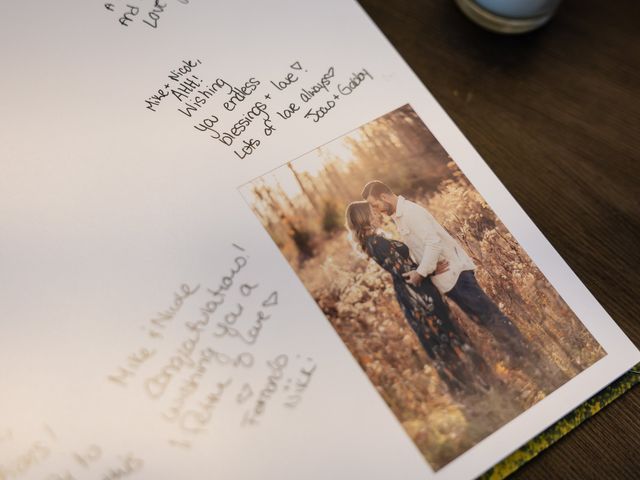 A
And
Love
Mike + Nicole,
AHH!
Wishing
you endless
blessings + love!
Lots of love always
Joao + Gabby
Mike + Nicole
Congratulations!
Wishing you a
of love
Fernando
Nikki
to